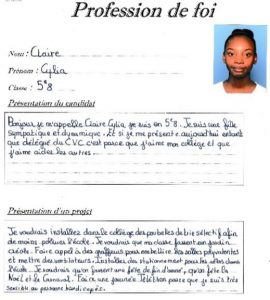 Profession de foi
Nom : Claire
Prénom : Cylia
Classe : 5°8
Présentation du candidat
Bonjour je m'appelle Claire Cylia, je suis en 5°8. Je suis une fille
sympatique et dynamique. Et si je me présente aujourd'hui entant
que délégué du CVC c'est parce que j'aime mon collège et que
j'aime aider les autres.
Présentation d'un projet
Je voudrais installez dans le collège des poubelles de bio sélectif afin
de moins polluer l'école. Je voudrais que ma classe fassent un jardin
créole. Faire appel à des graffeurs pour embellir les salles polyvalentes
et mettre des ventilateurs. Installez des stationnement pour les vélos dans
l'école. Je voudrais qu'on fassent une fête de fin d'année, qu'on fête la
Noël et le Carnaval. Faire une journée Téléthon parce que je suis très
sensible au personne handicapés.